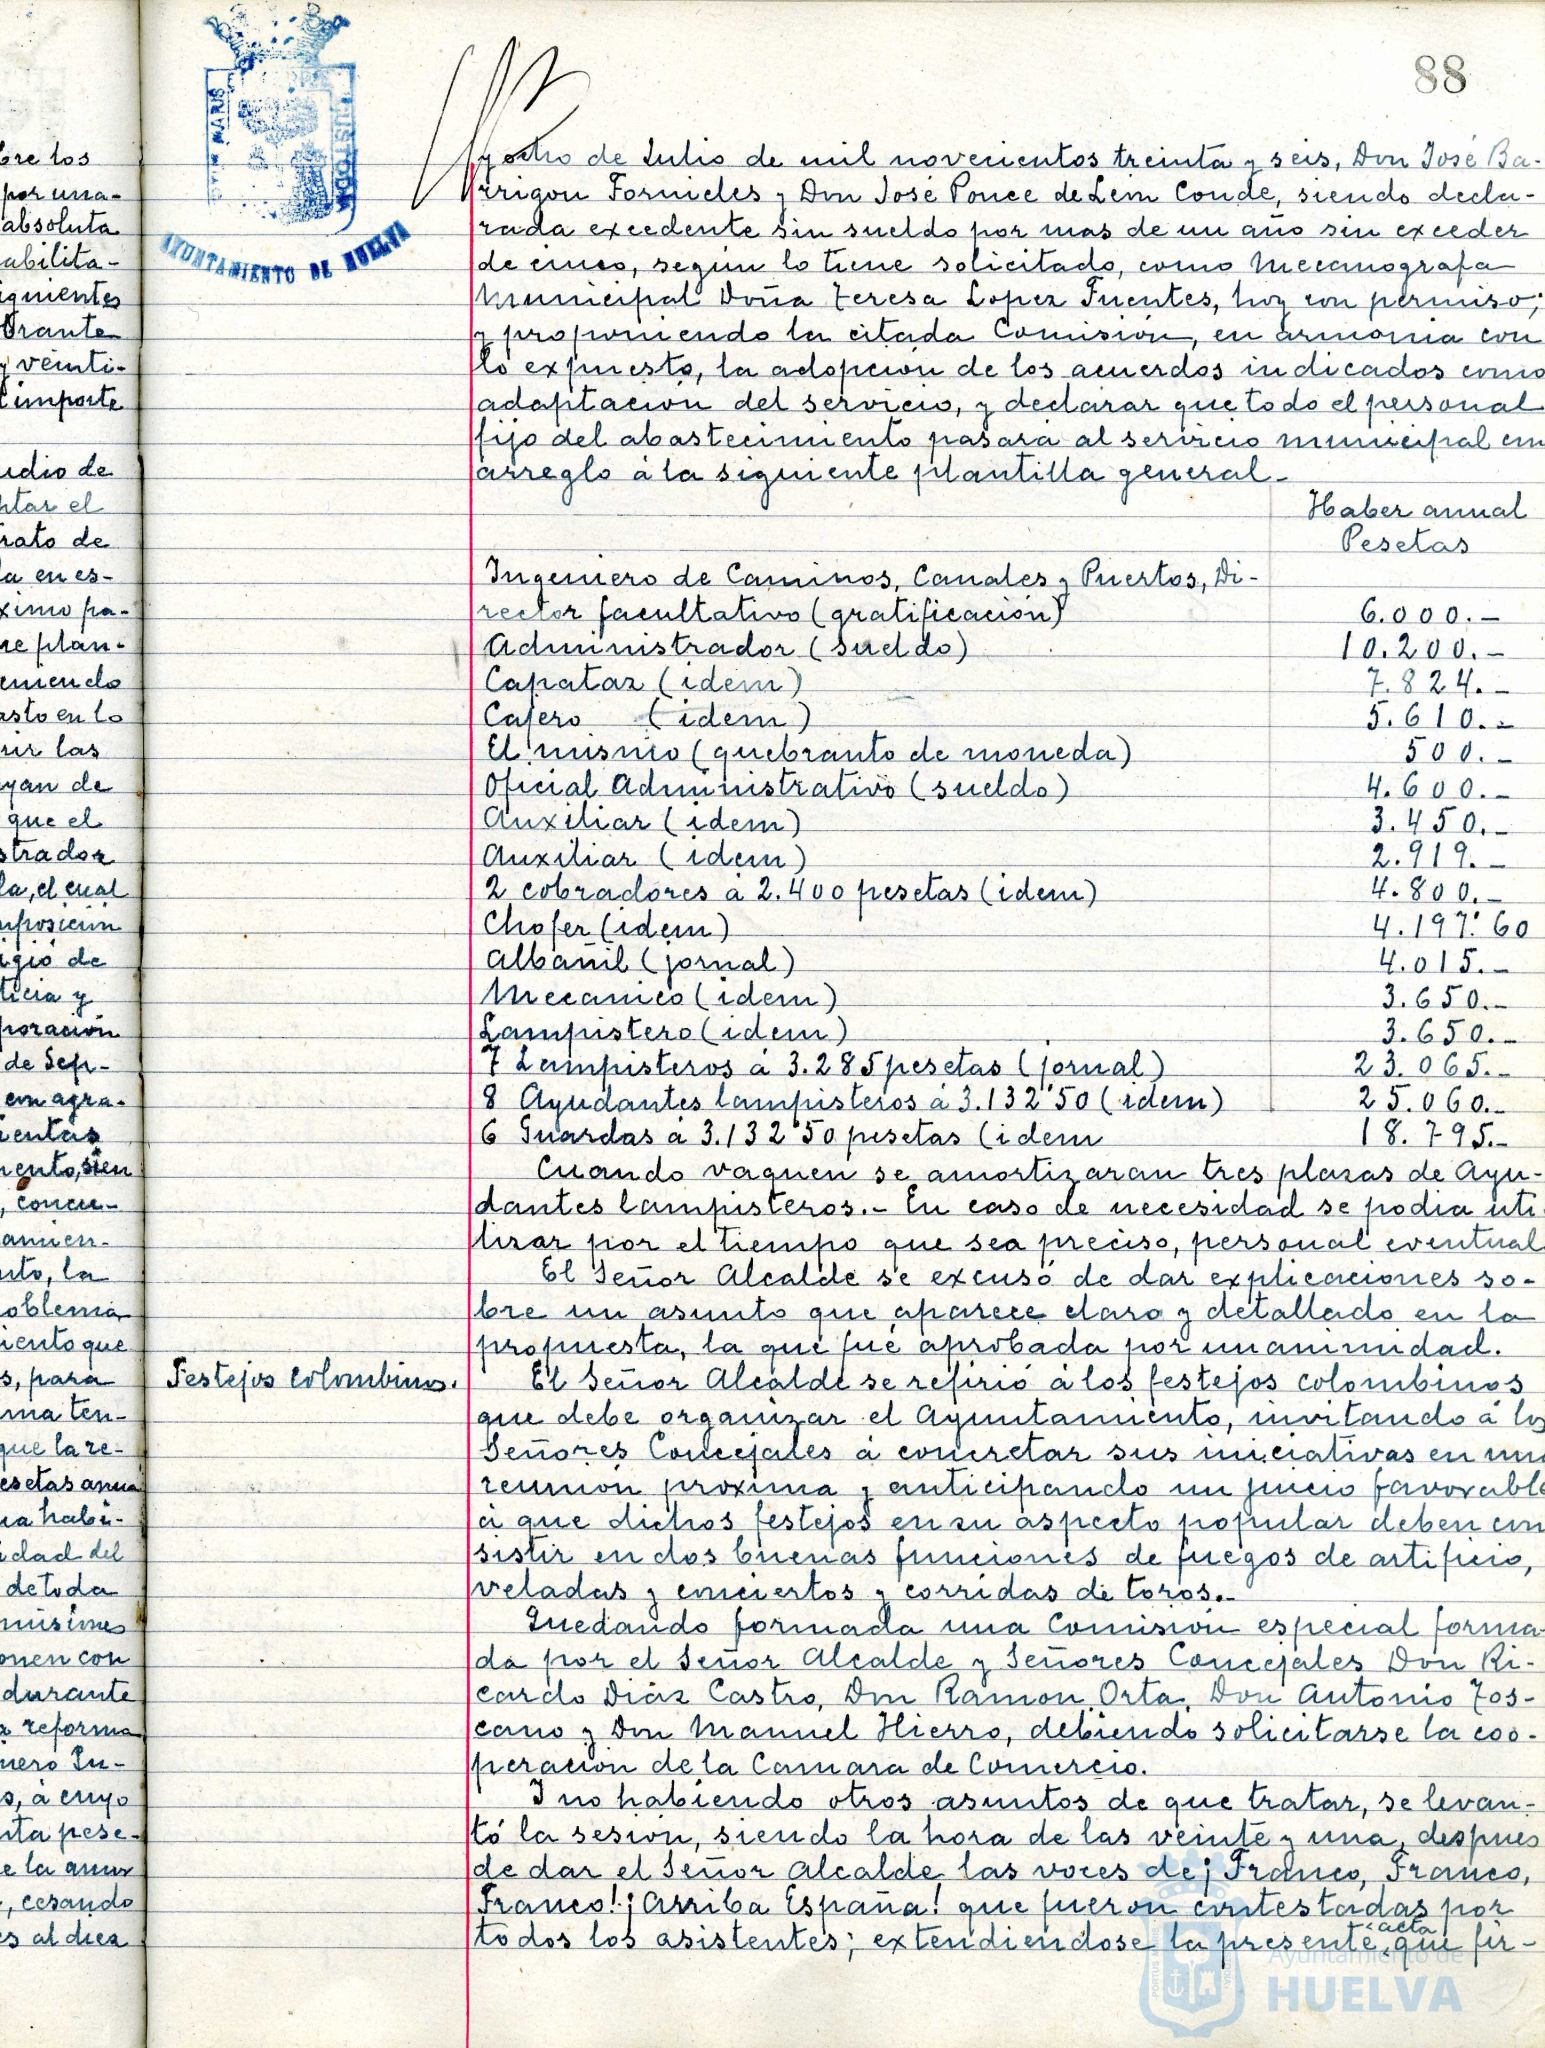 88
AYUNTAMIENTO DE HUELVA
y ocho de Julio de mil novecientos treinta y seis, Don José Ba-
rrigon Fornieles y Don José Ponce de Leon Conde, siendo decla-
rada excedente sin sueldo por mas de un año sin exceder
de cinco, según lo tiene solicitado, como Mecanografa
Municipal Doña Teresa Lopez Fuentes, hoy con permiso;
y proponiendo la citada Comisión, en armonia con
lo expuesto, la adopcion de los acuerdos indicados como
adaptacion del servicio, y declarar que todo el personal
fijo del abastecimiento pasará al servicio municipal con
arreglo á la siguiente plantilla general.-
Haber anual
Pesetas
Ingeniero de Caminos, Canales y Puertos, Di-
rector facultativo (gratificación) 6.000.-
Administrador (sueldo) 10.200.-
Capataz (idem) 7.824.-
Cajero (idem) 5.610.-
El mismo (quebranto de moneda) 500.-
Oficial Administrativo (sueldo) 4.600.-
Auxiliar (idem) 3.450.-
Auxiliar (idem) 2.919.-
2 cobradores á 2.400 pesetas (idem) 4.800.-
Chofer (idem) 4.197'60
Albañil (jornal) 4.015.-
Mecanico (idem) 3.650.-
Lampistero (idem) 3.650.-
7 Lampisteros á 3.285 pesetas (jornal) 23.065.-
8 Ayudantes lampisteros á 3.132'50 (idem) 25.060.-
6 Guardas á 3.132'50 pesetas (idem 18.795.-
Cuando vaquen se amortizaran tres plazas de Ayu-
dantes lampisteros.- En caso de necesidad se podia uti-
lizar por el tiempo que sea preciso, personal eventual
El Señor Alcalde se excusó de dar explicaciones so-
bre un asunto que aparece claro y detallado en la
propuesta, la que fué aprobada por unanimidad.
Festejos colombinos.
El Señor Alcalde se refirió á los festejos colombinos
que debe organizar el Ayuntamiento, invitando á los
Señores Concejales á concretar sus iniciativas en una
reunión proxima y anticipando un juicio favorable
á que dichos festejos en su aspecto popular deben con
sistir en dos buenas funciones de fuegos de artificio,
veladas y conciertos y corridas de toros.-
Quedando formada una Comision especial forma-
da por el Señor Alcalde y Señores Concejales Don Ri-
cardo Diáz Castro, Don Ramon Orta, Don Antonio Tos-
cano y Don Manuel Hierro, debiendo solicitarse la coo-
peración de la Camara de Comercio.
Y no habiendo otros asuntos de que tratar, se levan-
tó la sesion, siendo la hora de las veinte y una, despues
de dar el Señor Alcalde las voces de ¡Franco, Franco,
Franco! ¡Arriba España! que fueron contestadas por
todos los asistentes; extendiendose la presente acta que fir-
Ayuntamiento de
HUELVA